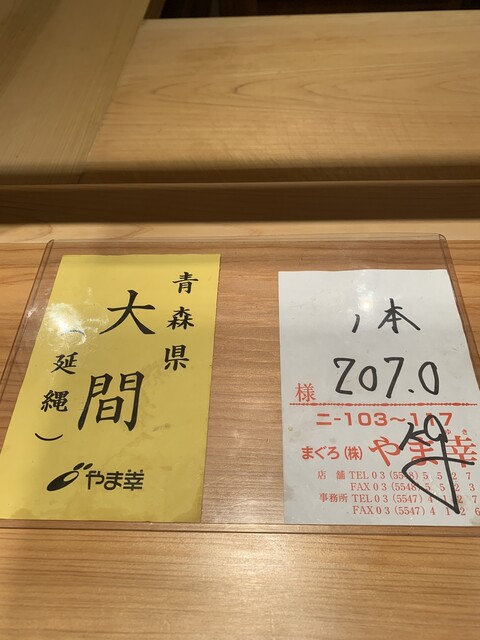 青森県
大間
(延縄)
やま幸
1本
207.0
様
ニー103〜117
まぐろ(株)やま幸
店舗 TEL 03 (5548) 5527
FAX 03 (5548) 5523
事務所 TEL 03 (5547) 4127
FAX 03 (5547) 4126